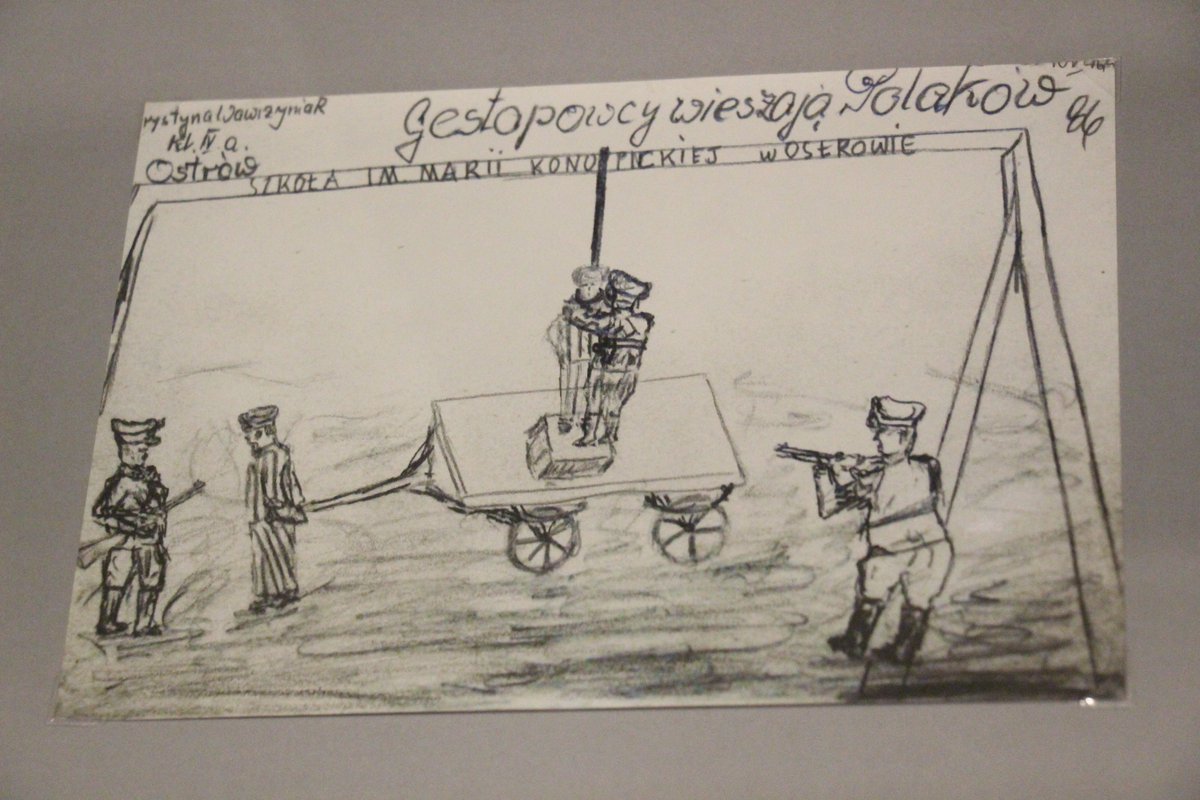 rystyna Wawrzyniak
kl. IV a.
Ostrów
Gestapowcy wieszają Polaków
86
SZKOŁA IM. MARII KONOPNICKIEJ w OSTROWIE